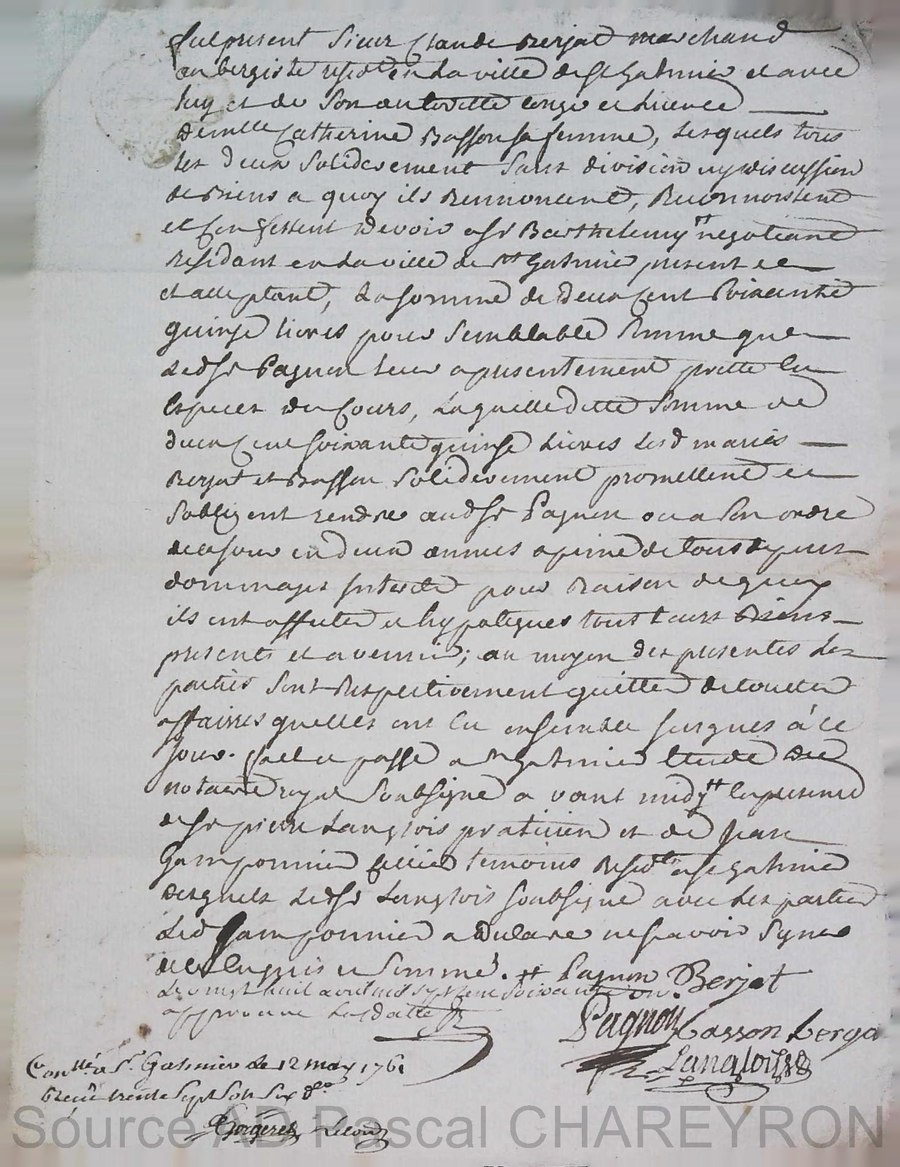 fut present Sieur Claude Berjat marchand
aubergiste resid.t en la ville de St Galmier et avec
luy et de Son authoritté congé et licence
demlle Catherine Basson sa femme, Lesquels tous
les deux Soliderement Sans division ny discussion
de Biens a quoy ils Renoncent, Reconnoissent
et Confessent devoir a Sr Barthelemy # negotiant
Residant en la ville de St Galmier present et
acceptant, La somme de deux Cent Soixante
quinse livres pour Semblable Somme que
Ledt Sr Pagnon leur a presentement pretté En
Especes du Cours, Laquelle ditte Somme de
deux Cent soixante quinse Livres Lesd mariés
Berjat et Basson Soliderement promettent et
Sobligent rendre audt Sr Pagnon ou a Son ordre
de ce jour en deux années a peine de tous depens
dommages Interets pour Raison de quoy
ils ont affectés et hypotequés tout Leurs Biens
presents et avenir; au moyen des presentes Les
parties Sont Respectivement quittes de touttes
affaires quelles ont Eu ensemble jusques à ce
jour. fait et passé a St Galmier Etude du
notaire royal Soubsigné avant midy # En presence
de Sr pierre Langlois praticien et de Jean
Gamponnier temoins Resid.ts a St Galmier
Desquels Ledt Sr Langlois Soubsigné avec Les parties
Led Gamponnier a Declaré ne Scavoir Signer
de ce Enquis et Sommé. # Pagnon Berjat
Le vingt huit avril mil sept cent soixante un.
approuvé La datte
Pagnon Basson Berja
Langlois
Con.llé a St Galmier Le 12 may 1761
Reçu trente Sept Sols Six d.